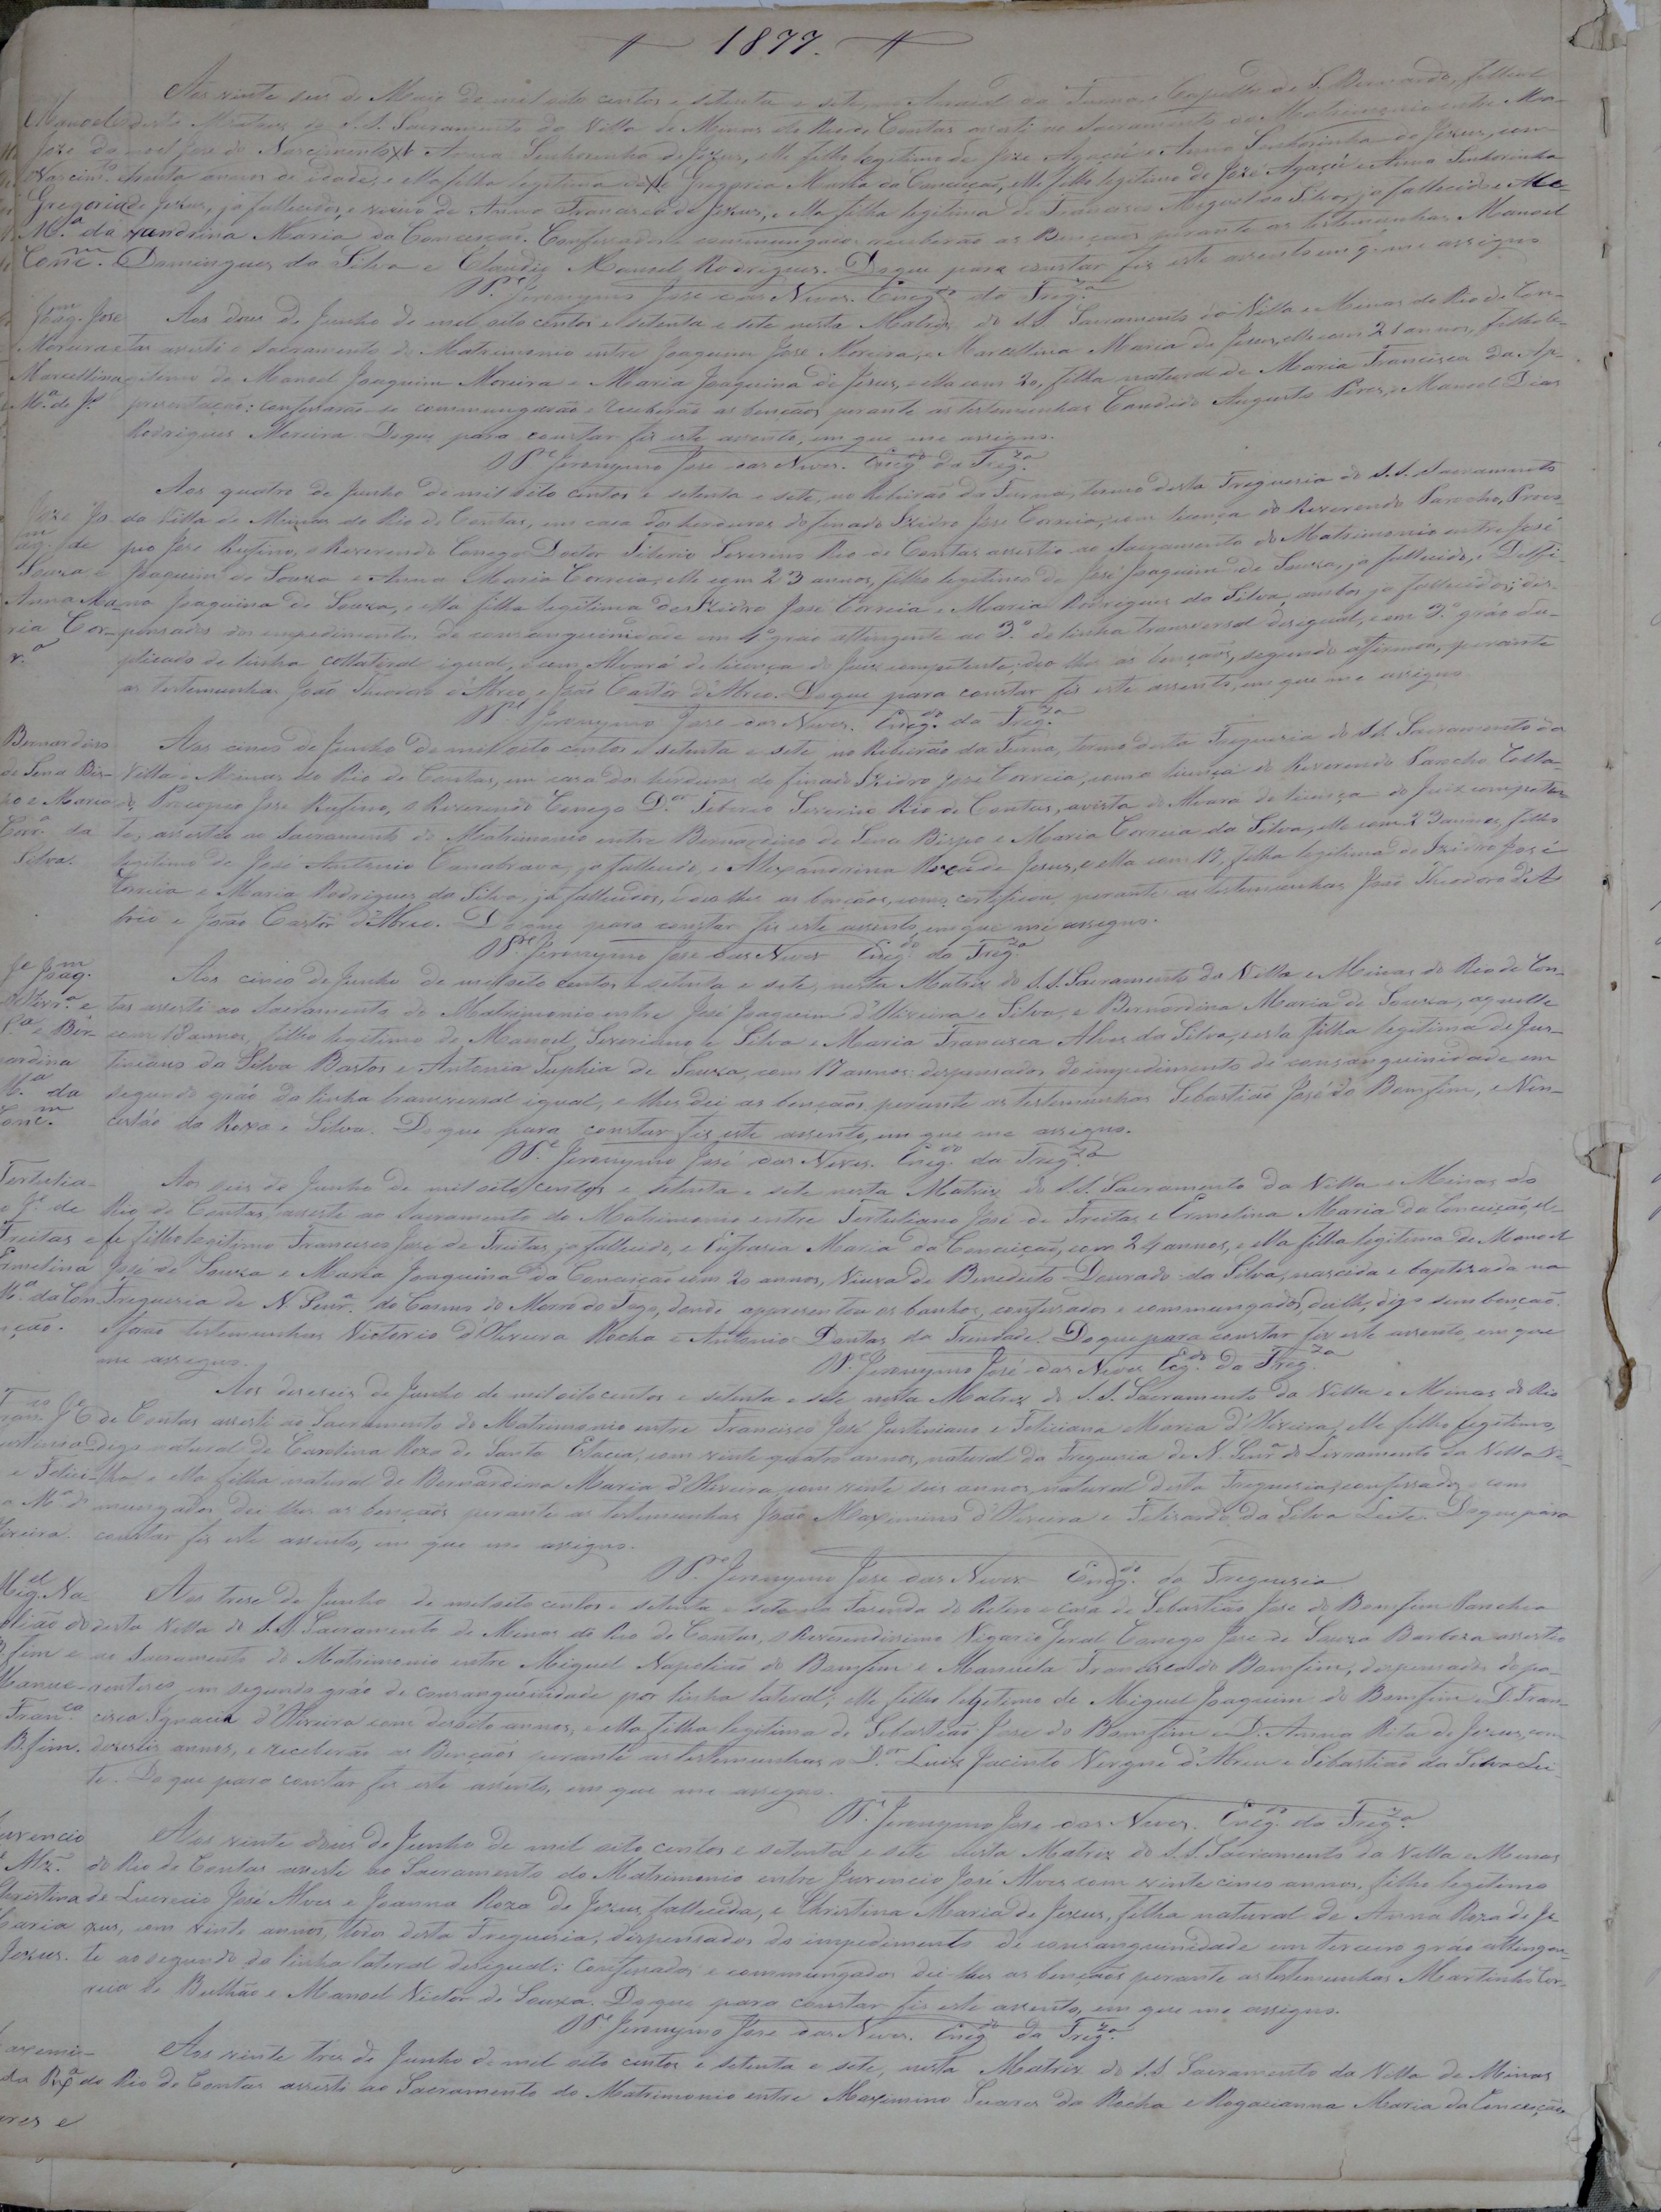 1877.
Aos vinte seis de Maio de mil oito centos e setenta e sete, na Fasenda da Furna e Capella de S. Bernardo, fellial
Manoel desta Matris do S. S. Sacramento da Villa de Minas do Rio de Contas assisti ao Sacramento do Matrimonio entre Ma-
Joze do noel Jose do Nascimento e Anna Senhorinha de Jezus, elle filho legitimo de Joze Agaçú e Anna Senhorinha de Jezus, com
Nascim.to trenta annos de idade, e ella filha legitima de Gregoria Maria da Conceição, elle filho legitimo de José Agaçú e Anna Senhorinha
Gregoria de Jezus, já fallecidos, e viuvo de Anna Francisca de Jezus, e ella filha legitima de Francisco Miguel da Silva, já fallecido e Ale-
M.ª da xandrina Maria da Conceição. Confessados e commungados receberão as Bençaõs perante as testemunhas Manoel
Conc.m Domingues da Silva e Claudio Manoel Rodrigues. Do que para constar fis este assento em que me assigno.
P.e Jeronymo José das Neves. Encg.do da Freg.za
Joaq.m Jose Aos dous de Junho de mil oito centos e setenta e sete nesta Matris do S. S. Sacramento da Villa e Minas do Rio de Con-
Moreira e tas assisti o Sacramento do Matrimonio entre Joaquim José Moreira, e Marcellina Maria de Jesus, elle com 21 annos, filho le-
Marcellina gitimo de Manoel Joaquim Moreira e Maria Joaquina de Jesus, e ella com 20, filha natural de Maria Francisca da Ap-
M.ª de J.s presentação: confessarão-se commungarão e receberão as bençãos perante as testemunhas Candido Augusto Pires, e Manoel Dias
Rodrigues Moreira. Do que para constar fis este assento, em que me assigno.
P.e Jeronymo José das Neves. Encg.do da Freg.za
Aos quatro de Junho de mil oito centos e setenta e sete, no Ribeirão da Furna, termo desta Freguesia do S. S. Sacramento
Joze Jo- da Villa de Minas do Rio de Contas, em casa dos herdeiros do finado Izidro José Correia, com licença do Reverendo Parocho, Proco-
aq.m de pio José Rufino, o Reverendo Conego Doctor Tiberio Severino Rio de Contas assistio ao Sacramento do Matrimonio entre José
Souza e Joaquim de Souza e Anna Maria Correia, elle com 23 annos, filho legitimo de José Joaquim de Souza, já fallecido, e Delfi-
Anna Ma- na Joaquina de Souza, e ella filha legitima de Izidro José Correia e Maria Rodrigues da Silva, ambos já fallecidos; dis-
ria Cor- pensados dos empedimentos de consanguinidade em 4º gráo attingente ao 3.º de linha transversal desigual, e em 3.º gráo du-
r.ª plicado de linha collateral igual, e com Alvará de licença do Juiz competente; deo lhes as bençaõs, segundo affirmou, perante
as testemunhas João Theodoro d'Abreo, e João Castôr d'Abreo. Do que para constar fis este assento, em que me assigno.
P.e Jeronymo José das Neves. Encg.do da Freg.za
Bernardino Aos cinco de Junho de mil oito centos e setenta e sete no Ribeirão da Furna, termo desta Freguesia do S. S. Sacramento da
de Sena Bis- Villa e Minas do Rio de Contas, em casa dos herdeiros do finado Izidro José Correia, com a licença do Reverendo Parocho Colla-
po e Maria do Procopio José Rufino, o Reverendo Conego D.or Tiberio Severino Rio de Contas, a vista do Alvará de licença do Juiz competen-
Corr.ª da te, assistio ao Sacramento do Matrimonio entre Bernardino de Sena Bispo e Maria Correia da Silva, elle com 23 annos, filho
Silva. legitimo de José Antonio Canabrava, já fallecido, e Alexandrina Roza de Jesus, e ella com 17, filha legitima de Izidro José
Correia e Maria Rodrigues da Silva, já fallecidos, e deo lhes as bençãos, como certificou, perante as testemunhas João Theodoro d'A-
breo e João Castôr d'Abreo. Do que para constar fis este assento, em que me assigno.
P.e Jeronymo José das Neves Encg.do da Freg.za
J.e Joaq.m Aos cinco de Junho de mil oito centos e setenta e sete, nesta Matris do S. S. Sacramento da Villa e Minas do Rio de Con-
d'Oliv.ra e tas assisti ao Sacramento do Matrimonio entre José Joaquim d'Oliveira e Silva, e Bernardina Maria de Souza, aquelle
S.ª e Ber- com 18 annos, filho legitimo de Manoel Severiano e Silva e Maria Francisca Alves da Silva, e esta filha legitima de Jus-
nardina tiniano da Silva Bastos e Antonia Suphia de Souza, com 17 annos: dispensados do impedimento de consanguinidade em
M.ª da segundo gráo da linha transversal igual, e lhes dei as bençãos perante as testemunhas Sebastião José do Bomfim, e Nin-
Conc.m cistáo da Roxa e Silva. Do que para constar fis este assento, em que me assigno.
P.e Jeronymo José das Neves. Encg.do da Freg.za
Tertulia- Aos seis de Junho de mil oito centos e setenta e sete nesta Matris do S. S. Sacramento da Villa e Minas do
o J.e de Rio de Contas assisti ao Sacramento do Matrimonio entre Tertuliano José de Freitas e Ermelina Maria da Conceição, el-
Freitas e le filho legitimo Francisco José de Freitas, já fallecido, e Eufrasia Maria da Conceição, com 24 annos, e ella filha legitima de Manoel
Ermelina José de Souza e Maria Joaquina da Conceição com 20 annos, Viuva de Benedicto Dourado da Silva, nascida e baptizada na
M.ª da Con- Freguesia de N. Senr.ª do Carmo do Morro do Fogo, donde appresentou os banhos, confessados e commungados, dei lhe, digo sem bençaõ.
ição. Forão testemunhas Victorio d'Oliveira Rocha e Antonio Dantas da Trindade. Do que para constar fis este assento, em que
me assigno. P.e Jeronymo José das Neves Ecg.do da Freg.za
Aos desesseis de Junho de mil oitocentos e setenta e sete nesta Matris do S. S. Sacramento da Villa e Minas do Rio
Fran.co J.e de Contas assisti ao Sacramento do Matrimonio entre Francisco José Justiniano e Feliciana Maria d'Oliveira, elle filho legitimo,
digo natural de Carolina Roza de Santa Estacia, com vinte quatro annos, natural da Freguesia de N. Senr.ª do Livramento da Villa Ve-
e Felici- lha e ella filha natural de Bernardina Maria d'Oliveira, com vinte seis annos, natural desta Freguesia, confessados e com
a M.ª d' mungados dei lhes as bençaõs perante as testemunhas João Maximino d'Oliveira e Felisardo da Silva Leite. Do que para
liveira. constar fis este assento, em que me assigno.
P.e Jeronymo José das Neves Encg.do da Freguesia
Mig.el Na- Aos trese de Junho de mil oito centos e setenta e sete na Fasenda do Retiro e casa de Sebastião José do Bomfim
olião do desta Villa do S. S. Sacramento de Minas do Rio de Contas, o Reverendissimo Vigario Geral Conego José de Souza Barboza assistio
B.fim e ao Sacramento do Matrimonio entre Miguel Napolião do Bomfim e Manuela Francisca do Bomfim, dispensados do pa-
Manue- rentesco em segundo gráo de consanguinidade por linha lateral; elle filho legitimo de Miguel Joaquim do Bomfim e D. Fran-
Fran.ca cisca Ignacia d'Oliveira com desoito annos, e ella filha legitima de Sebastião José do Bomfim e D. Anna Rita de Jezus, com
B.fim. desesseis annos, e receberão as Bençaõs perante as testemunhas o D.or Luiz Jacinto Vergne d'Abreu e Sebastião da Silva Lei-
te. Do que para constar fis este assento, em que me assigno.
P.e Jeronymo José das Neves. Encg.do da Freg.za
uvencio Aos vinte dous de Junho de mil oito centos e setenta e sete nesta Matris do S. S. Sacramento da Villa e Minas
do Rio de Contas assisti ao Sacramento do Matrimonio entre Juvencio José Alves com vinte cinco annos, filho legitimo
de Lucrecio José Alves e Joanna Roza de Jezus, fallecida, e Christina Maria de Jezus, filha natural de Anna Roza de Je-
Maria zus, com vinte annos, todos desta Freguesia; dispensados do impedimento de consanguinidade em terceiro gráo attingen-
Jezus. te ao segundo da linha lateral desigual: Confessados e commungados dei lhes as bençaõs perante as testemunhas Martinho Cor-
reia de Bulhão e Manoel Victor de Souza. Do que para constar fis este assento, em que me assigno.
P.e Jeronymo José das Neves. Encg.do da Freg.za
axemi- Aos vinte tres de Junho de mil oito centos e setenta e sete, nesta Matris do S. S. Sacramento da Villa de Minas
da do Rio de Contas assisti ao Sacramento do Matrimonio entre Maxemino Suares da Rocha e Rogacianna Maria da Conceição,
ares e